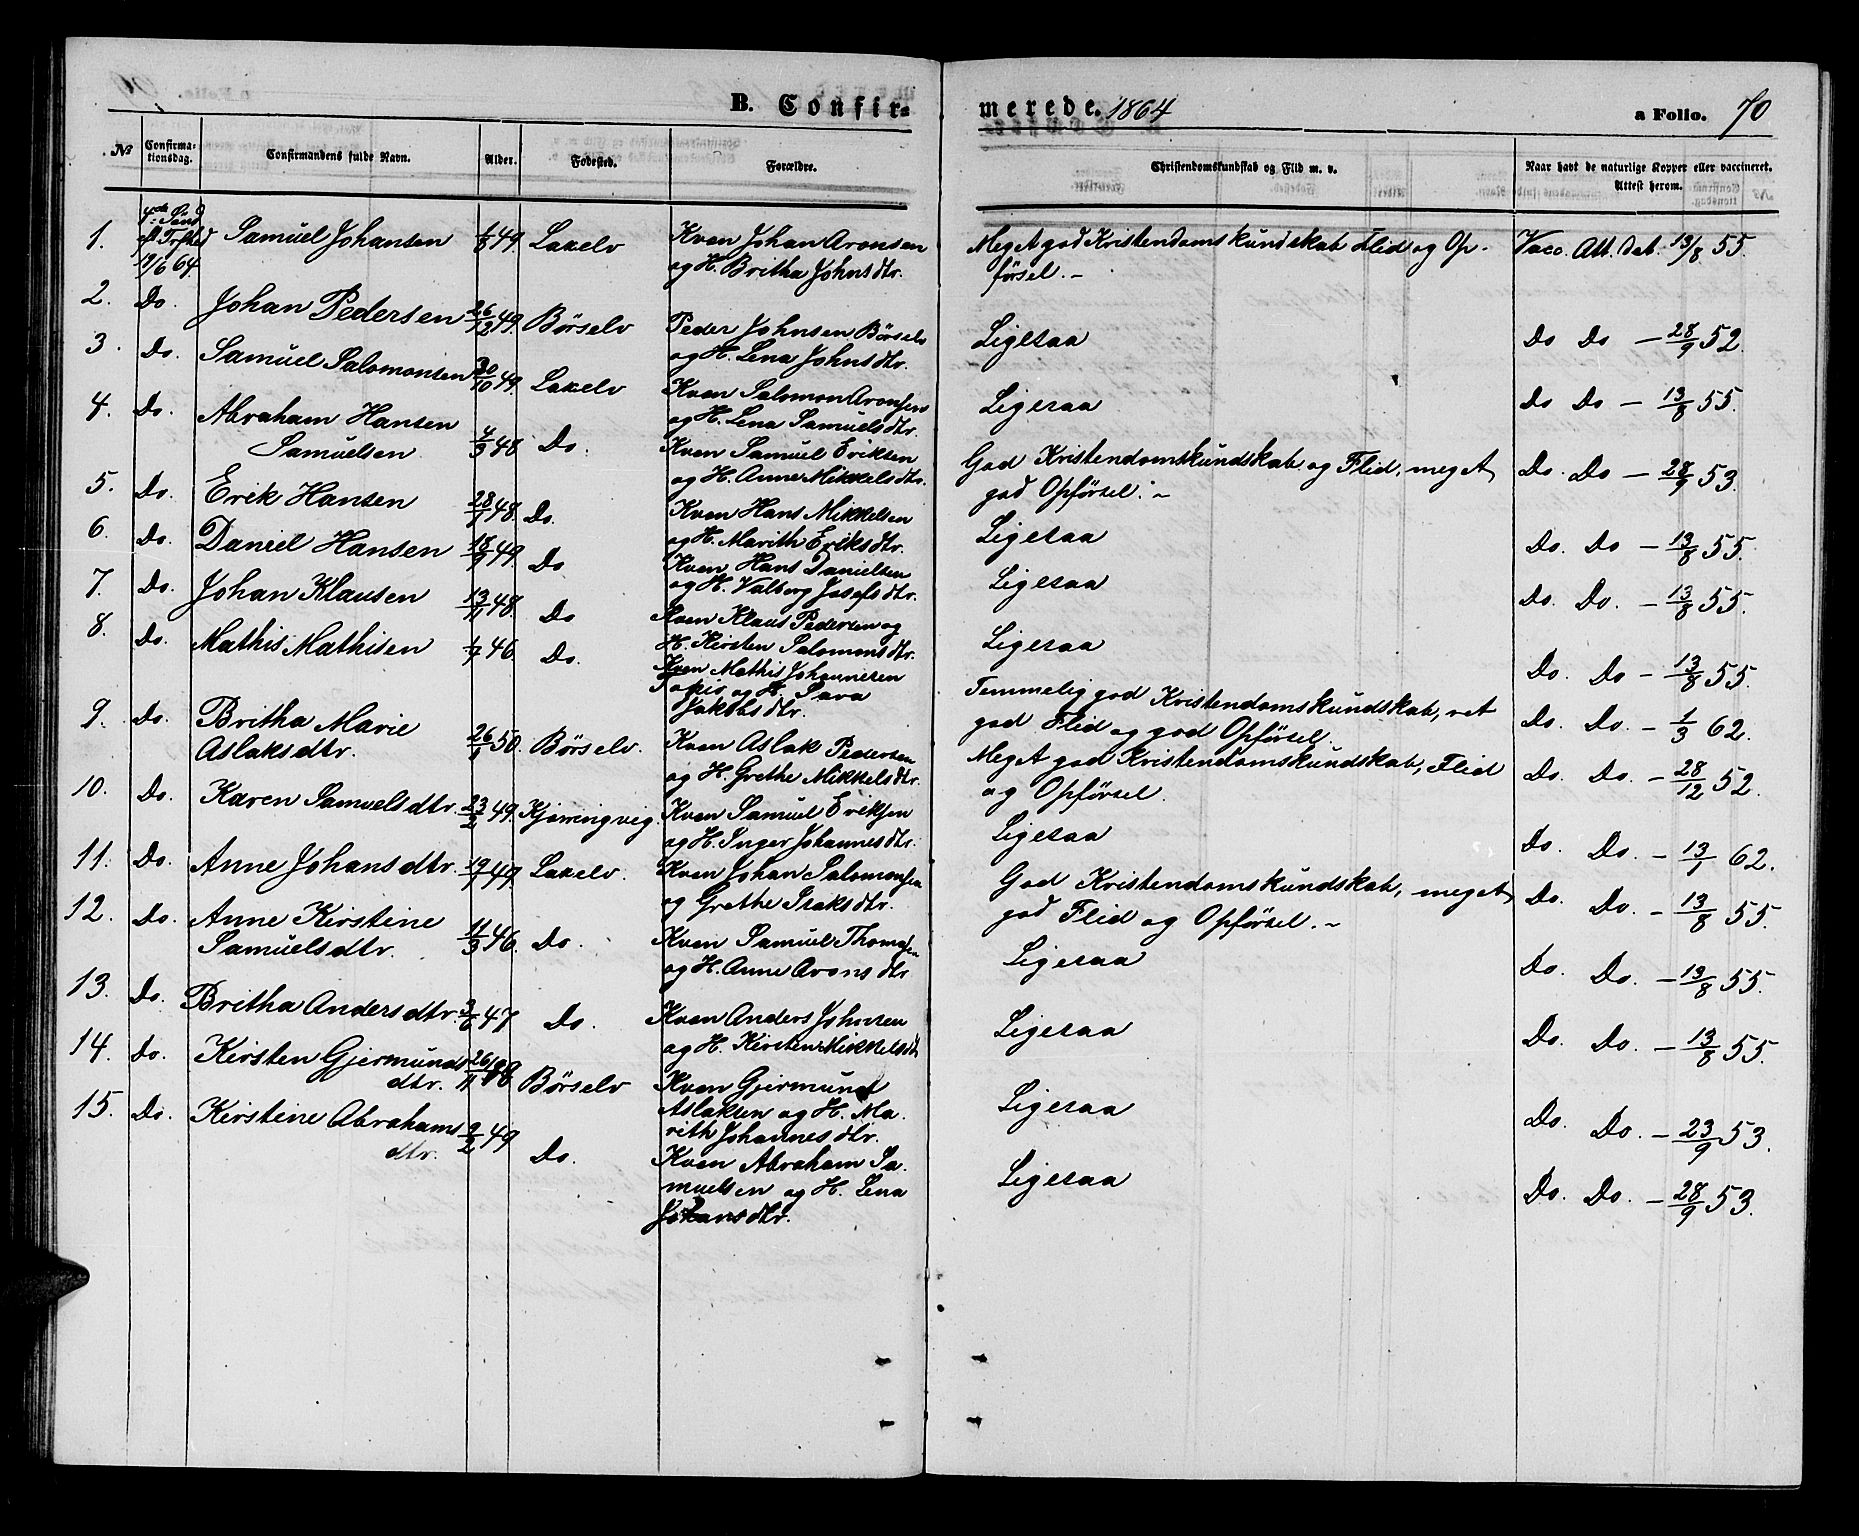 B. Confir=
merede. 1864
a Folio. 70
No Confirma-tionsdag. Confirmandens fulde Navn. Alder. Fødested. Forældre. Christendomskundskab og Flid m. v. Naar havt de naturlige Kopper eller vaccineret. Attest herom.
1. 4de Sønd eft Trfthed 19/6 64 Samuel Johansen 1/8 49. Lakelv Kven Johan Aronsen og H. Britha Johnsdtr. Meget god Kristendomskundskab Flid og Opførsel. - Vacc. Att. dat. 13/8 55.
2. Do. Johan Pedersen 26/12 49. Børselv Peder Johnsen Børselv og H. Lena Johnsdtr. Ligesaa Do Do - 28/9 52.
3. Do. Samuel Salomonsen 30/10 49. Lakelv Kven Salomon Aronsen og H. Lena Samuelsdtr. Ligesaa Do Do - 13/8 55.
4. Do. Abraham Hansen Samuelsen 4/3 48 Do. Kven Samuel Eriksen og H. Anne Mikkelsdtr. God Kristendomskundskab og Flid, meget god Opførsel. - Do. Do - 28/9 53.
5. Do. Erik Hansen 28/7 48. Do. Kven Hans Mikkelsen og H. Marith Eriksdtr. Ligesaa Do. Do - 13/8 55.
6. Do. Daniel Hansen 18/9 49. Do Kven Hans Danielsen og H. Valborg Josefsdtr. Ligesaa Do. Do. - 13/8 55.
7. Do. Johan Klausen 13/11 48. Do Kven Klaus Pedersen og H. Kirsten Salomonsdtr. Ligesaa Do. Do - 13/8 55.
8. Do. Mathis Mathisen 1/7 46. Do. Kven Mathis Johannesen og H. Sara Jakobsdtr. Temmelig god Kristendomskundskab, ret god Flid og god Opførsel. Do. Do. - 1/3 62.
9. Do. Britha Marie Aslaksdtr. 26/1 50. Børselv. Kven Aslak Pedersen og H. Grethe Mikkelsdtr. Meget god Kristendomskundskab, Flid og Opførsel. Do. Do. - 28/12 52.
10. Do. Karen Samuelsdtr. 23/2 49. Kjørringvig. Kven Samuel Eriksen og H. Inger Johannesdtr. Ligesaa Do. Do. - 13/1 62.
11. Do. Anne Johansdtr. 19/7 49. Lakelv. Kven Johan Salomonsen og Grethe Isaksdtr. God Kristendomskundskab, meget god Flid og Opførsel. - Do. Do. - 13/8 55.
12. Do. Anne Kirstine Samuelsdtr. 11/3 46. Do. Kven Samuel Thomasen og H. Anne Aronsdtr Ligesaa Do. Do. - 13/8 55.
13. Do. Britha Andersdtr. 3/6 47 Do. Kven Anders Johnsen og H. Kirsten Mikkelsdtr Ligesaa Do. Do. - 13/8 55.
14. Do. Kirsten Gjermundsdtr. 26/11 48 Børselv Kven Gjermund Aslaksen og H. Marith Johannesdtr. Ligesaa Do. Do. - 23/9 53.
15. Do. Kirstine Abrahamsdtr. 2/2 49 Do. Kven Abraham Samuelsen og H. Lena Johansdtr. Ligesaa Do. Do. - 28/9 53.